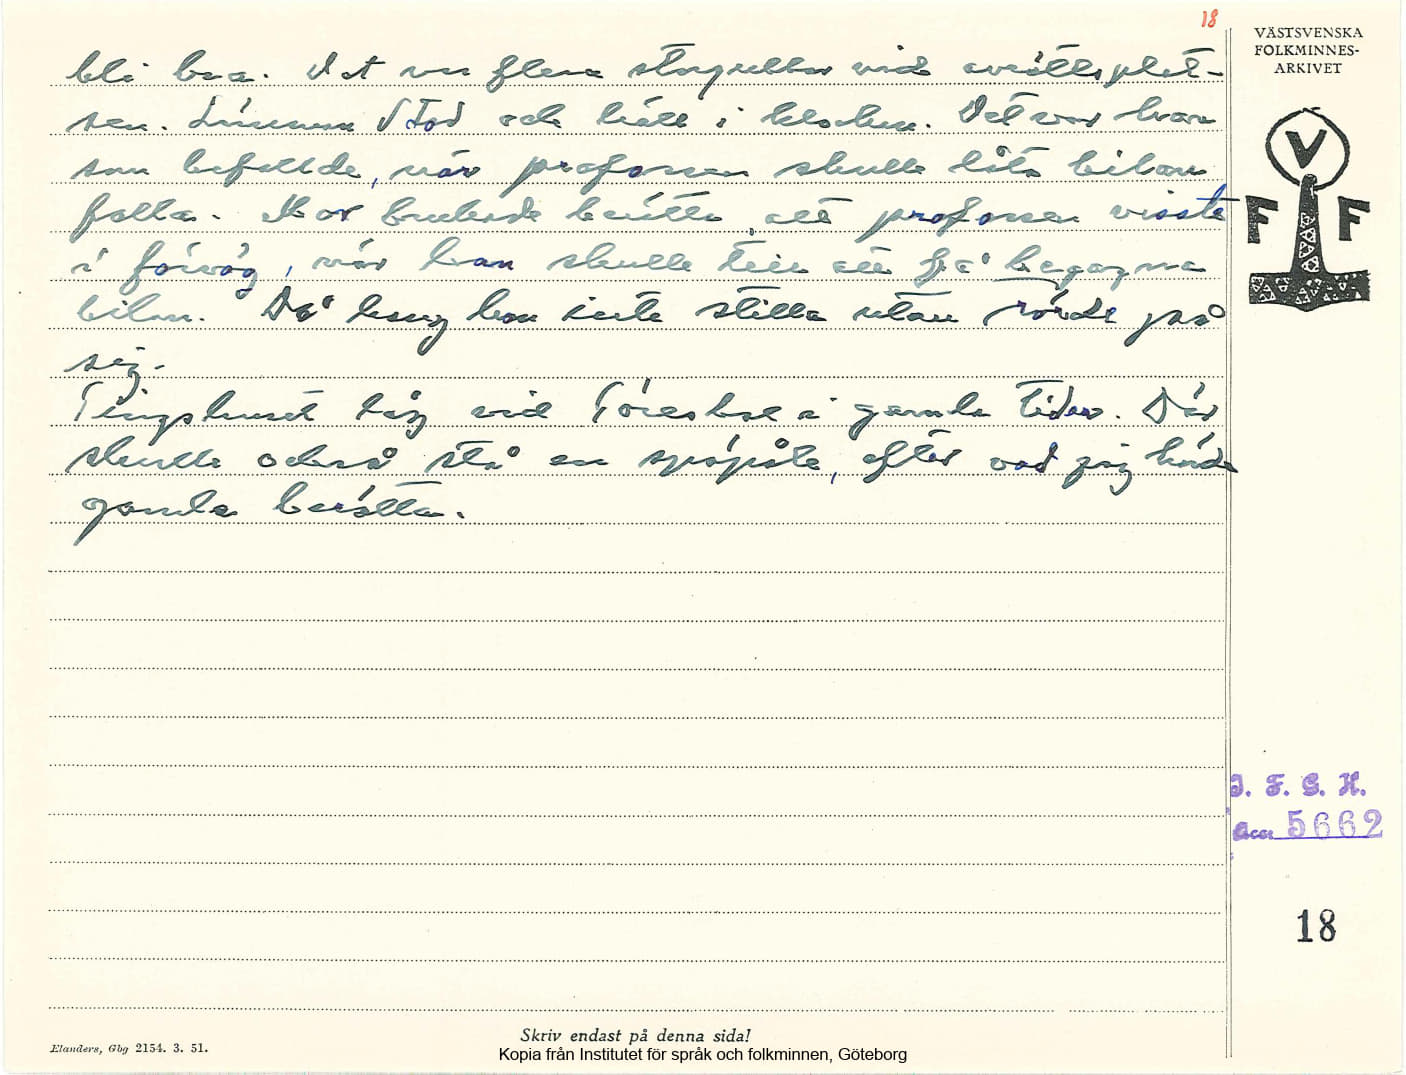 18
VÄSTSVENSKA
FOLKMINNES-
ARKIVET
V
F F
bli bra. Det var flera storgubbar vid avrättsplat-
sen. Länsman stod och höll i klockan. Det var han
som befallde, när profossen skulle låta bilan
falla. Mor brukade berätta, att profossen visste
i förväg, när han skulle till att få begagna
bilan. Då hang hon inte stilla utan rörde på
sig.
Tingshuset låg vid Töresbol i gamla tider. Där
skulle också stå en spöpåle, efter vad jag hörde
gamla berätta.
I. F. G. H.
Acc 5662
18
Skriv endast på denna sida!
Elanders, Gbg 2154. 3. 51.
Kopia från Institutet för språk och folkminnen, Göteborg